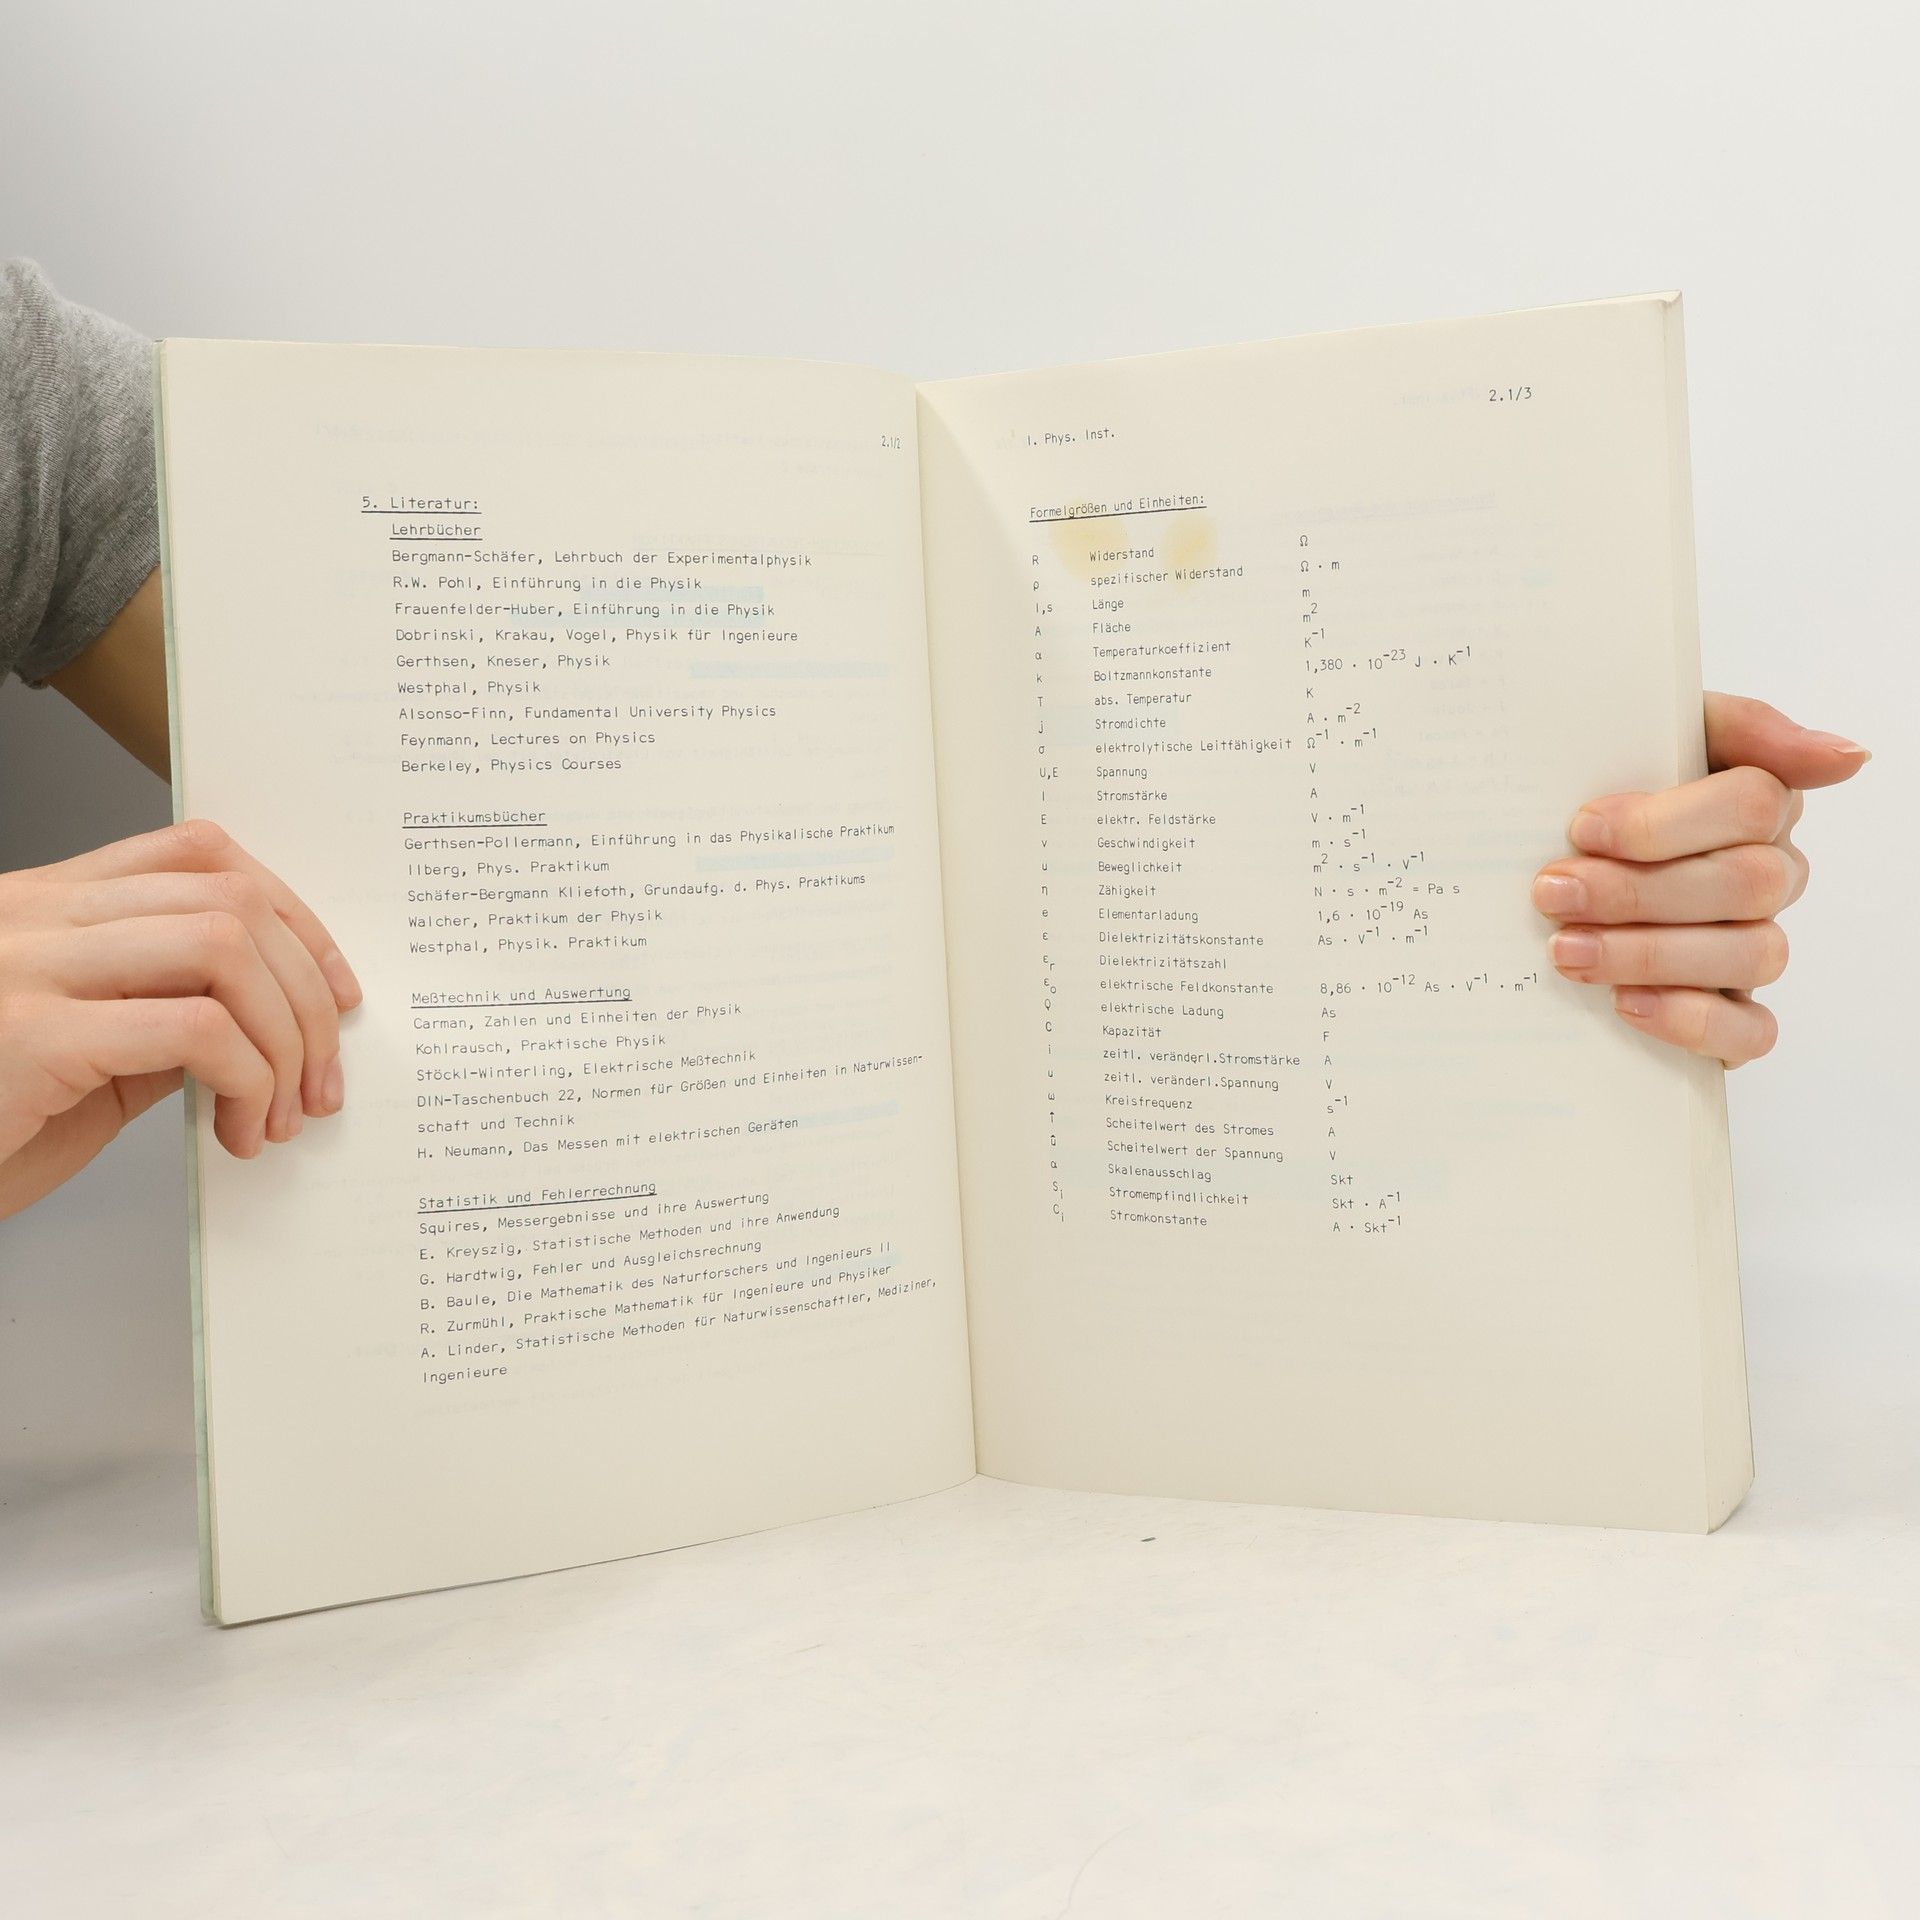 2.1/2
5. Literatur:
Lehrbücher
Bergmann-Schäfer, Lehrbuch der Experimentalphysik
R.W. Pohl, Einführung in die Physik
Frauenfelder-Huber, Einführung in die Physik
Dobrinski, Krakau, Vogel, Physik für Ingenieure
Gerthsen, Kneser, Physik
Westphal, Physik
Alsonso-Finn, Fundamental University Physics
Feynmann, Lectures on Physics
Berkeley, Physics Courses
Praktikumsbücher
Gerthsen-Pollermann, Einführung in das Physikalische Praktikum
Ilberg, Phys. Praktikum
Schäfer-Bergmann Kliefoth, Grundaufg. d. Phys. Praktikums
Walcher, Praktikum der Physik
Westphal, Physik. Praktikum
Meßtechnik und Auswertung
Carman, Zahlen und Einheiten der Physik
Kohlrausch, Praktische Physik
Stöckl-Winterling, Elektrische Meßtechnik
DIN-Taschenbuch 22, Normen für Größen und Einheiten in Naturwissen-
schaft und Technik
H. Neumann, Das Messen mit elektrischen Geräten
Statistik und Fehlerrechnung
Squires, Messergebnisse und ihre Auswertung
E. Kreyszig, Statistische Methoden und ihre Anwendung
G. Hardtwig, Fehler und Ausgleichsrechnung
B. Baule, Die Mathematik des Naturforschers und Ingenieurs II
R. Zurmühl, Praktische Mathematik für Ingenieure und Physiker
A. Linder, Statistische Methoden für Naturwissenschaftler, Mediziner,
Ingenieure
2.1/3
I. Phys. Inst.
Formelgrößen und Einheiten:
R Widerstand Ω
ρ spezifischer Widerstand Ω · m
l,s Länge m
A Fläche m²
α Temperaturkoeffizient K⁻¹
k Boltzmannkonstante 1,380 · 10⁻²³ J · K⁻¹
T abs. Temperatur K
j Stromdichte A · m⁻²
σ elektrolytische Leitfähigkeit Ω⁻¹ · m⁻¹
U,E Spannung V
I Stromstärke A
E elektr. Feldstärke V · m⁻¹
v Geschwindigkeit m · s⁻¹
u Beweglichkeit m² · s⁻¹ · V⁻¹
η Zähigkeit N · s · m⁻² = Pa s
e Elementarladung 1,6 · 10⁻¹⁹ As
ε Dielektrizitätskonstante As · V⁻¹ · m⁻¹
εᵣ Dielektrizitätszahl
ε₀ elektrische Feldkonstante 8,86 · 10⁻¹² As · V⁻¹ · m⁻¹
Q elektrische Ladung As
C Kapazität F
i zeitl. veränderl.Stromstärke A
u zeitl. veränderl.Spannung V
ω Kreisfrequenz s⁻¹
Î Scheitelwert des Stromes A
Û Scheitelwert der Spannung V
α Skalenausschlag Skt
Sᵢ Stromempfindlichkeit Skt · A⁻¹
Cᵢ Stromkonstante A · Skt⁻¹